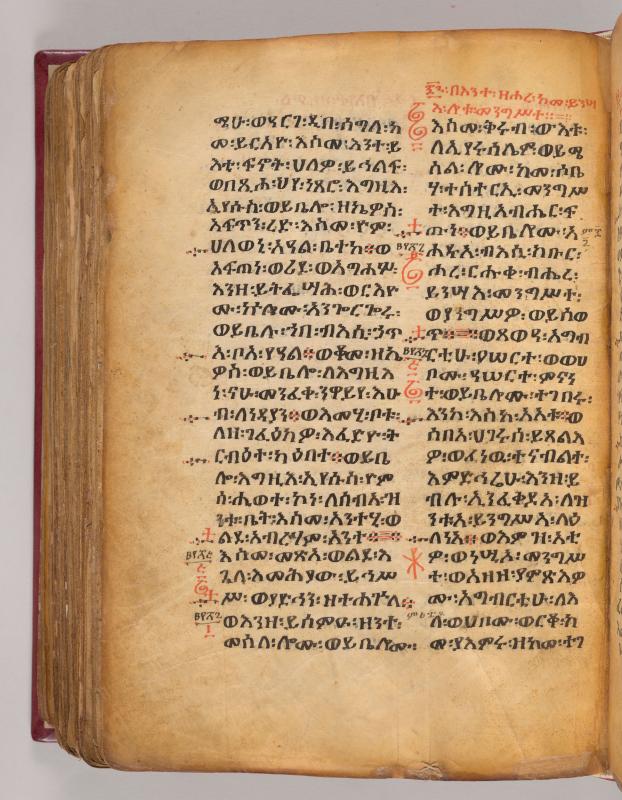 ወዓርገ፡ዲበ፡ሰግላ፡ከ
መ፡ይርአዮ፡እስመ፡እንተ፡ይ
እቲ፡ፍኖት፡ሀለዎ፡ይኅልፍ፡
ወበጺሖ፡ህየ፡ነጸሮ፡እግዚእ፡
ኢየሱስ፡ወይቤሎ፡ዘኬዎስ፡
አፍጥን፡ረድ፡እስመ፡ዮም፡
ሀለወኒ፡ቤተከ።ወ
አፍጠነ፡ወረደ፡ወአግሐሦ፡
እንዘ፡ይትፌሣሕ፡ወርእዮ
ሙ፡ኵሎሙ፡አንጐርጐሩ፡
ወይቤሉ፡ኀበ፡ብእሲ፡ኃጥ
እ፡ቦአ፡ወቆመ፡ዘኬ
ዎስ፡ወይቤሎ፡ለእግዚእ
ነ፡ናሁ፡መንፈቀ፡ንዋይየ፡እሁ
ብ፡ለነዳያን።ወእመሂ፡ቦቱ፡
ለዘ፡ገፋዕክዎ፡እፈድዮ፡ት
ርብዕተ፡ካዕበተ።ወይቤ
ሎ፡እግዚእ፡ኢየሱስ፡ዮም
ሰ፡ሒወተ፡ኮነ፡ለሰብአ፡ዝ
ንቱ፡ቤት፡እስመ፡አንተሂ፡ወ
ልደ፡አብርሃም፡አንተ።
እስመ፡መጽአ፡ወልደ፡እ
ጓለ፡እመሕያው፡ይኅሥ
ሥ፡ወያድኅን፡ዘተሐጕለ።
ወእንዘ፡ይሰምዑ፡ዘንተ፡
መሰለ፡ሎሙ፡ወይቤሎሙ፡
በእንተ፡ዘሖረ፡ከመ፡ይንሣ
እ፡ሎቱ፡መንግሥተ።
እስመ፡ቅሩብ፡ውእቱ፡
ለኢየሩሳሌም፡ወይሜ
ስል፡ሎሙ፡ከመ፡ሶቤ
ሃ፡ተስተርኢ፡መንግሥ
ተ፡እግዚአብሔር፡
ወይቤሎሙ፡
ብእሲ፡ክቡር፡
ሖረ፡ርሑቀ፡ብሔረ፡
ይንሣእ፡መንግሥተ፡
ወጸውዓ፡አግብ
ርቲሁ፡ዓሠርተ፡ወወሀ
ቦሙ፡ዓሠርተ፡ምናን
ተ፡ወይቤሎሙ፡ተገበሩ፡
እንከ፡እስከ፡እአቱ።ወ
ሰብአ፡ሀገሩሰ፡ይጸልእ
ዎ፡ወፈነዉ፡ተናብልተ፡
እምድኅሬሁ፡እንዘ፡ይ
ብሉ፡ኢንፈቅደአ፡ለዝ
ንቱ፡ይንግሥአ፡ላዕ
ሌነአ።ወእምዝ፡አቲ
ዎ፡ወነሢኦ፡መንግሥ
ተ፡ወአዘዘ፡ያምጽእዎ
ሙ፡አግብርቲሁ፡ለእ
ለ፡ወሀቦሙ፡ወርቆ፡ከ
መ፡ያእምሩ፡ዘከመ፡ተገ